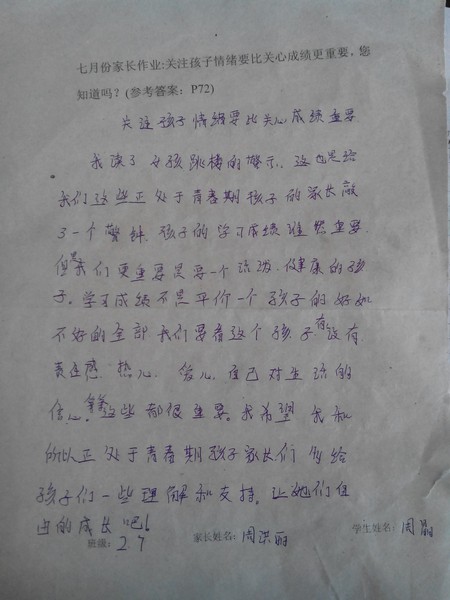 七月份家长作业:关注孩子情绪要比关心成绩更重要，您
知道吗？(参考答案：P72)
关注孩子情绪要比关心成绩重要
我读了女孩跳楼的警示，这也是给
我们这些正处于青春期孩子的家长敲
了一个警钟，孩子的学习成绩虽然重要，
但是我们更重要是要一个活泼、健康的孩
子。学习成绩不是平价一个孩子的好如
不好的全部我们要看这个孩子有没有
责任感、热心、爱心、自己对生活的
信心等等这些都很重要。我希望我和
所以正处于青春期孩子家长们多给
孩子们一些理解和支持，让她们自
由的成长吧！
班级：2.7 家长姓名：周洪丽 学生姓名：周